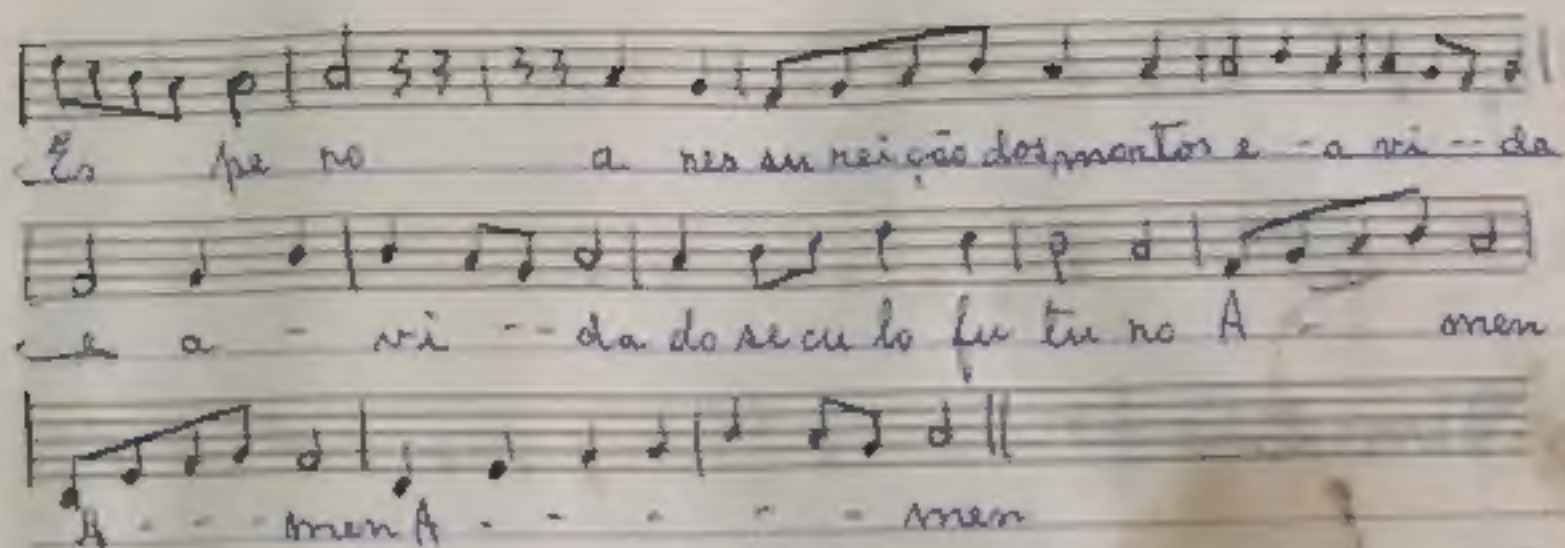 Es pe ro a res su rei ção dos mortos e - a vi -- da
e a - vi -- da do se cu lo fu tu ro A - men
A - - - men A - - - - - men